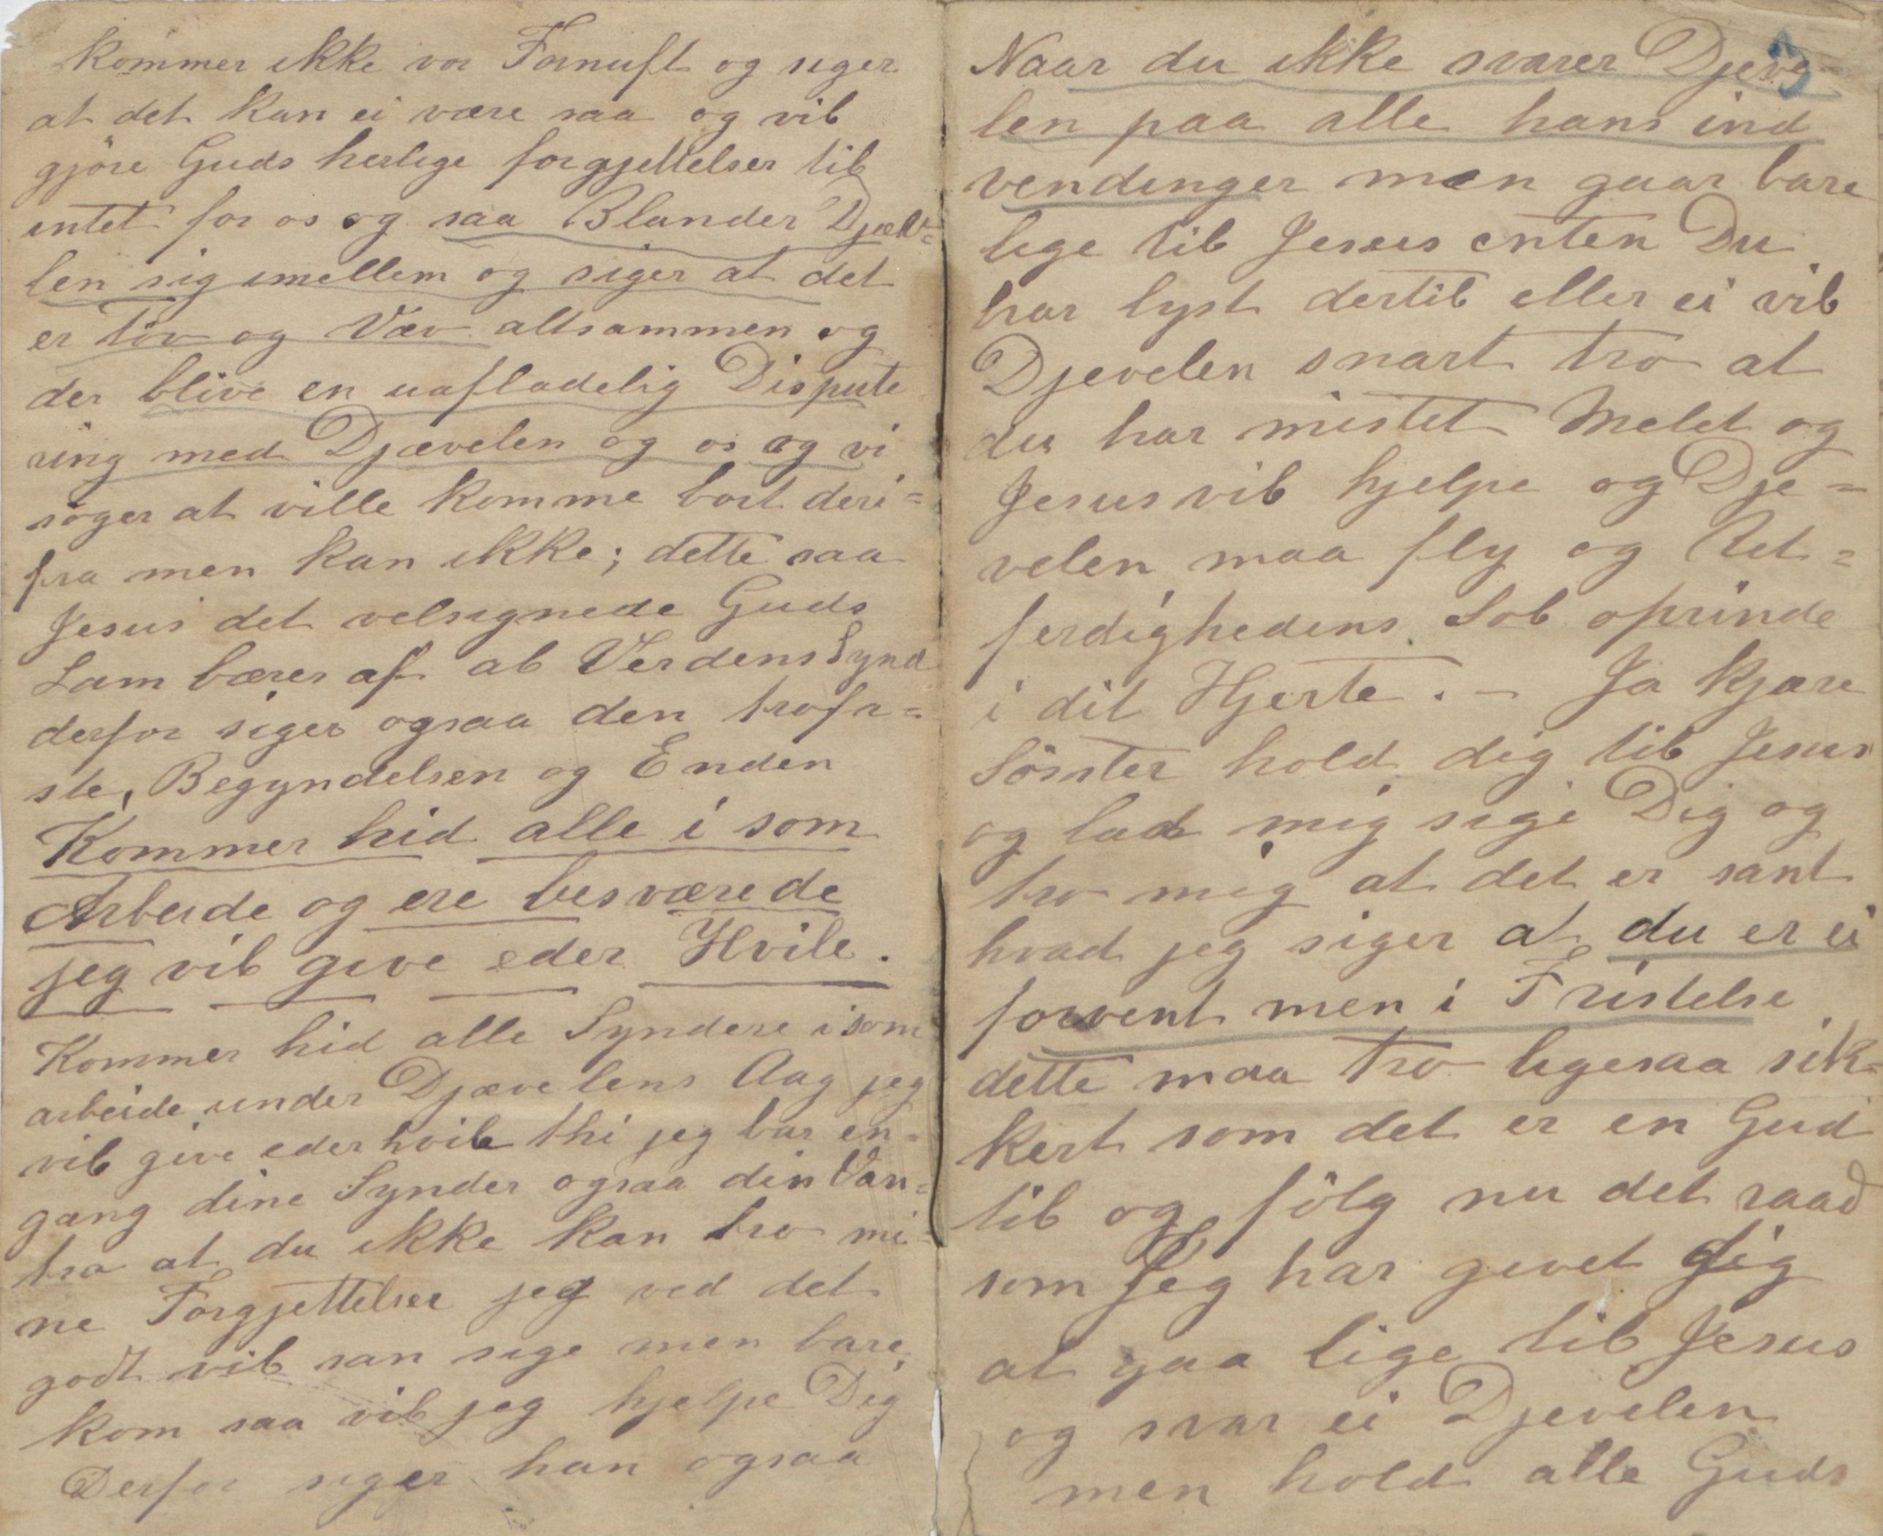 kommer ikke vor Fornuft og siger
at det kan ei være saa og vil
gjöre Guds herlige forgjettelser til
intet for os og saa Blander Djæv=
len sig imellem og siger at det
er Töv og Væv altsammen og
der blive en uafladelig Dispute
ring med Djævelen og os og vi
söger at ville komme bort deri=
fra men kan ikke; dette saa
Jesus det velsignede Guds
Lam bærer af al Verdens Synd
derfor siger ogsaa den trofa=
ste, Begyndelsen og Enden
Kommer hid alle i som
Arbeide og ere besværede
jeg vil give eder Hvile.
Kommer hid alle Syndere i som
arbeide under Djævelens Aag jeg
vil give eder hvile thi jeg bar en=
gang dine Synder ogsaa din Van=
tro at du ikke kan tro mi=
ne Forgjettelser jeg ved det
godt vil han sige men bare
kom saa vil jeg hjelpe Dig
Derfor siger han ogsaa
3
Naar du ikke svarer Djeve
len paa alle hans ind
vendinger men gaar bare
lige til Jesus enten Du
har lyst dertil eller ei vil
Djevelen snart tro at
du har mistet Melet og
Jesus vil hjelpe og Dje=
velen maa fly og Ret=
ferdighedens Sol oprinde
i dit Hjerte. – Ja kjære
Sösster hold dig til Jesus
og lad mig sige Dig og
tro mig at det er sant
hvad jeg siger at du er ei
forvent men i Fristelse
dette maa tro ligesaa sik=
kert som det er en Gud
til og fölg nu det raad
som Jeg har givet dig
at gaa lige til Jesus
og svar ei Djevelen
men hold alle Guds